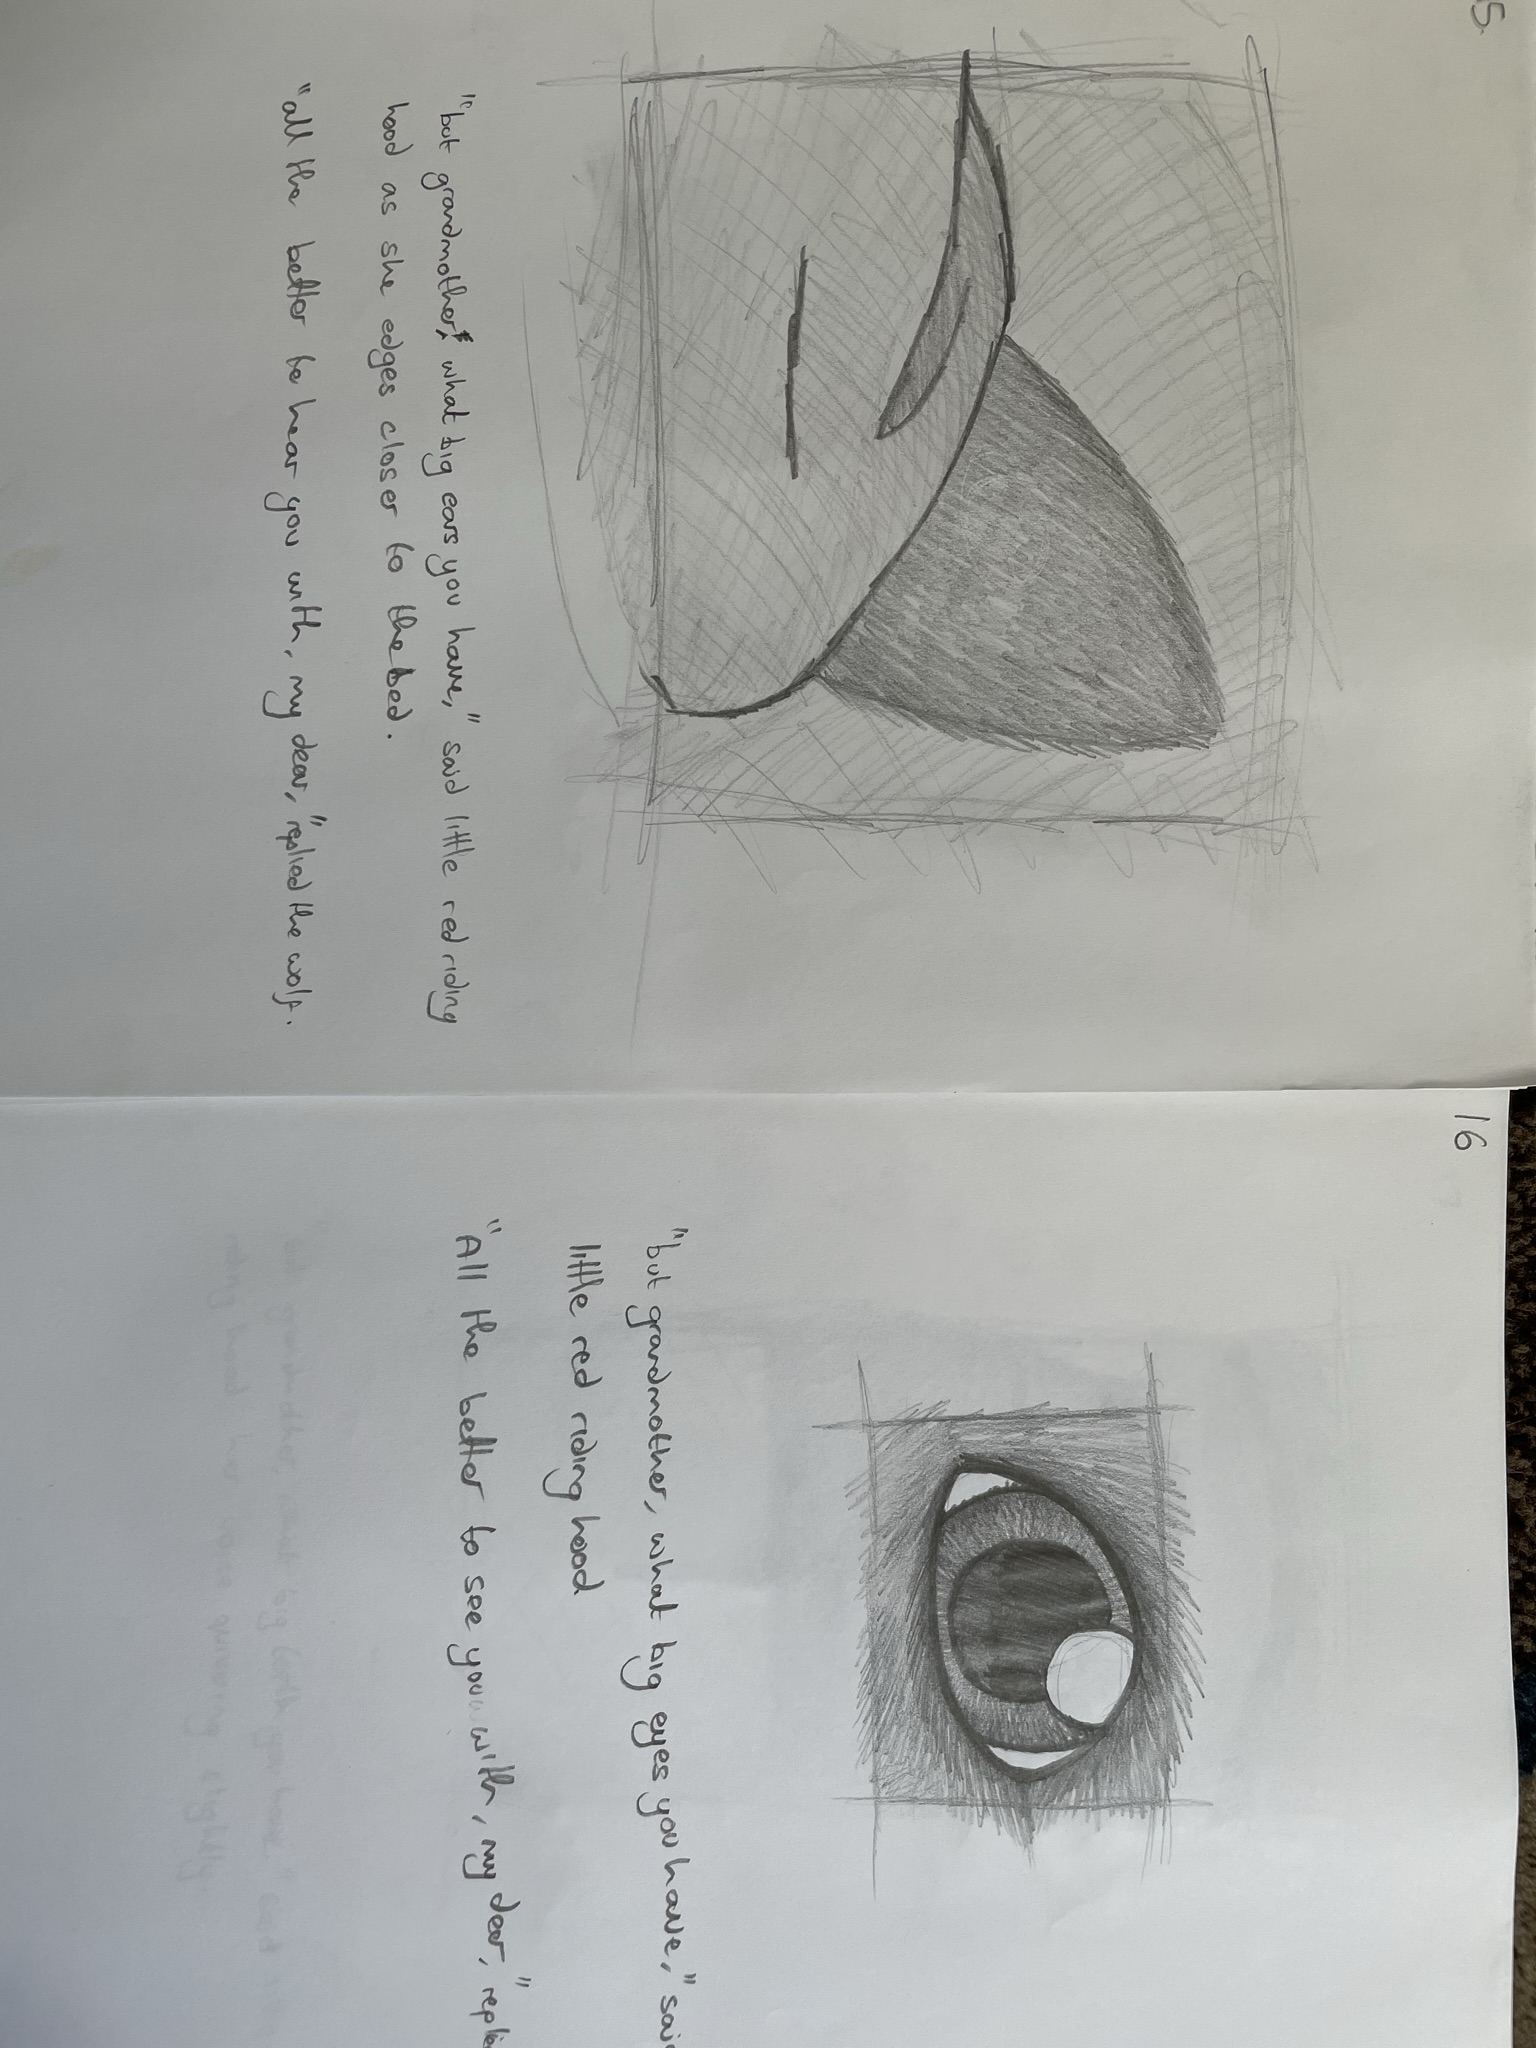 5.
"but grandmother, what big ears you have," said little red riding
hood as she edges closer to the bed.
"all the better to hear you with, my dear," replied the wolf.
16
"but grandmother, what big eyes you have," said
little red riding hood
"All the better to see you with, my dear," replie
but grandmother, what big teeth you have," said
riding hood her voice quivering slightly